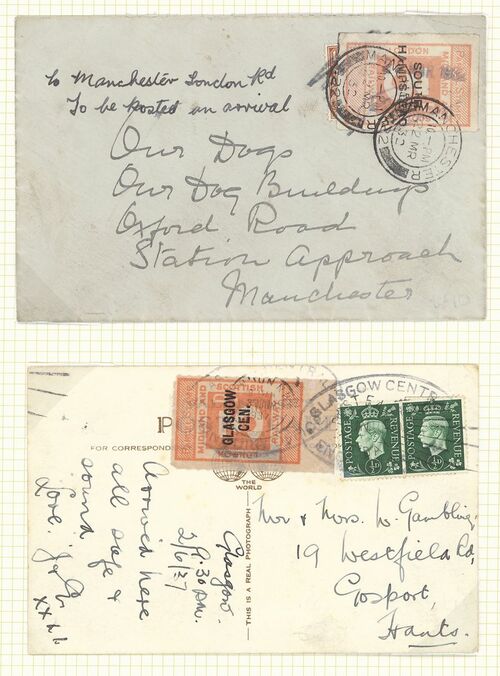 to Manchester London Rd
To be posted on arrival
Our Dogs
Our Dog Buildings
Oxford Road
Station Approach
Manchester
MANCHESTER
MR
32
SOUTH
HAMPSTEAD
GLASGOW CENTRAL
MIDLAND AND SCOTTISH
GLASGOW
CEN.
POSTAGE
REVENUE
POSTAGE
REVENUE
FOR CORRESPOND
THE
WORLD
THIS IS A REAL PHOTOGRAPH
Glasgow.
2/9.30 p.m.
Arrived here
all safe &
sound
Love.
xx
Mr & Mrs. W. Gambling,
19 Westfield Rd,
Gosport,
Hants.